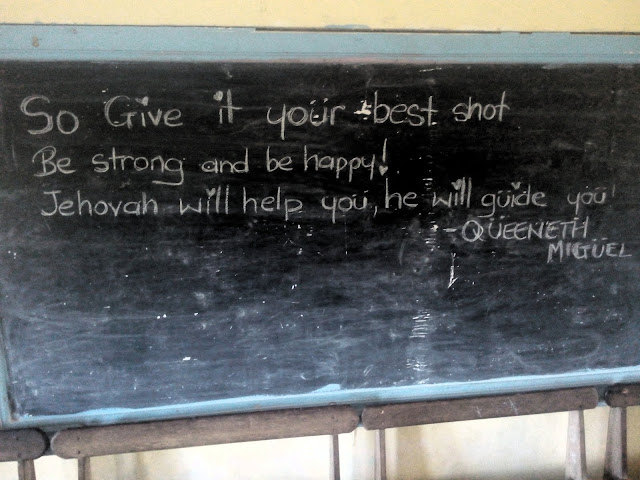 So Give it your best shot
Be strong and be happy!
Jehovah will help you, he will guide you!
-QUEENETH
MIGUEL